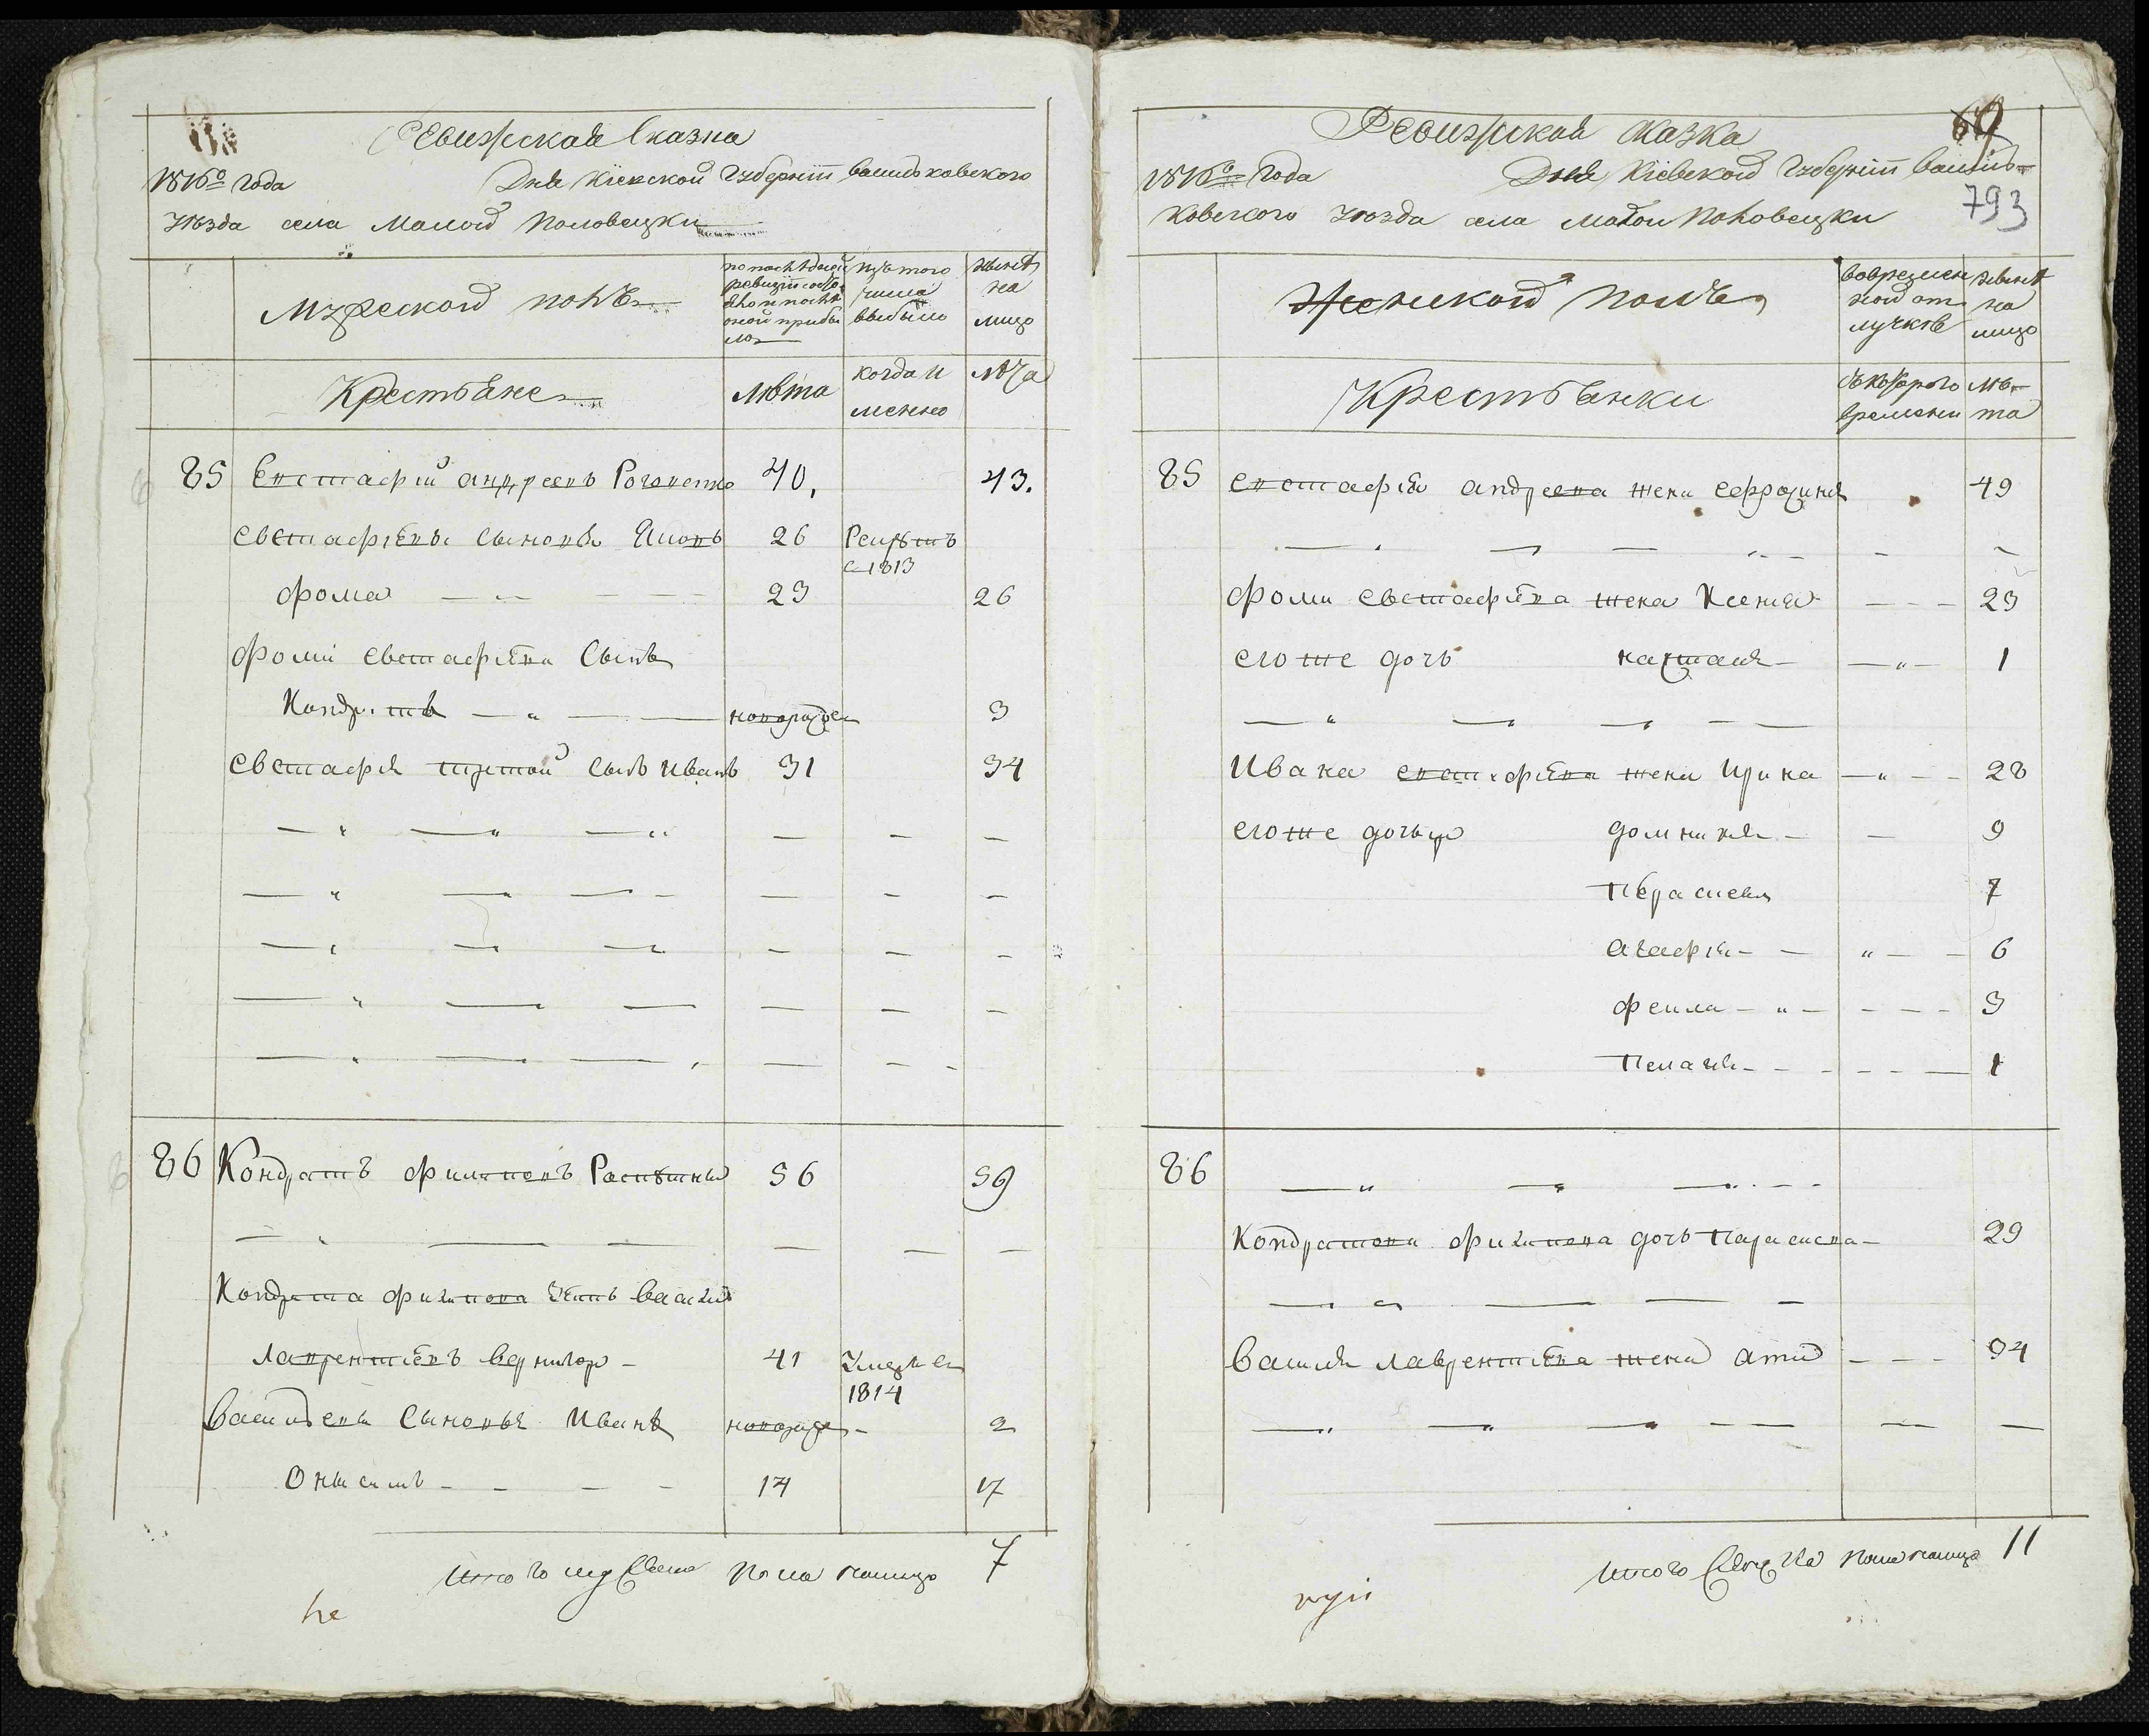 Ревизская Сказка
1816го года Дня Кіевской Губерніи васильковского
уезда села Малой Половецки
Мужеской полъ
по последней ревизіи состояло и после оной прибыло
изъ того числа выбыло
ныне на лицо
Крестьяне
Лета
когда именно
Лета
85 Евстафій андреевъ 40. 43.
евстафіевы сыновья Яковъ 26 Рекрутъ
с 1813
фома 23 26
фоми евстафіева Сынъ
Кондратъ новорожден 3
евстафія третой сынъ иванъ 31 34
86 Кондратъ филиповъ Распутный 56 59
Кондрата филипова зять василій
лаврентіевъ вернигор 41 Умеръ в
1814
васильевы Сыновья Иванъ новорожд 2
Онисимъ 14 17
Итого мужеска пола налицо 7
he
Ревизская сказка
69
1816го Года Дня Кіевской Губерніи василь-
ковского уезда села малой Половецки
793
Женской полъ
во временной отлучкѣ
ныне на лицо
Крестьянки
съ которого времени
лѣ-
та
85 евстафія андреева жена ефрозиния 49
фоми евстафіева жена Ксенія 23
его же дочь наталя 1
Ивана евстафіева жена Ирина 28
его же дочери домникия 9
Параскева 7
агафія 6
фекла 3
Пелагия 1
86
Кондратова филипова дочь Параскева 29
василія лаврентіева жена 34
Итого женска пола налицо 11